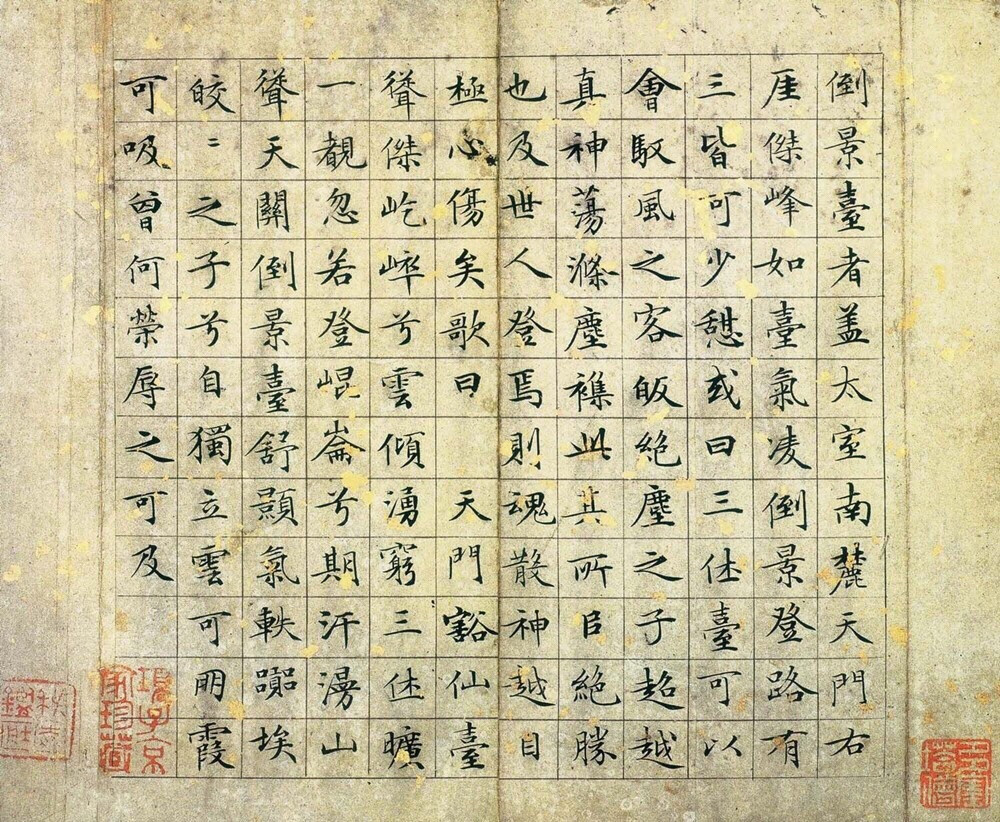 倒景臺者盖太室南麓天門右
厓傑峰如臺氣凌倒景登路有
三皆可少憇或曰三休臺可以
會馭風之客皈絕塵之子超越
真神蕩滌塵襍此其所㠯絕勝
也及世人登焉則魂散神越目
極心傷矣歌曰 天門豁仙臺
聳傑屹崒兮雲傾湧窮三休曠
一覩忽若登崐崙兮期汗漫山
聳天關倒景臺舒顥氣軼囂埃
皎〻之子兮自獨立雲可朋霞
可吸曾何榮辱之可及
項子京家珍藏